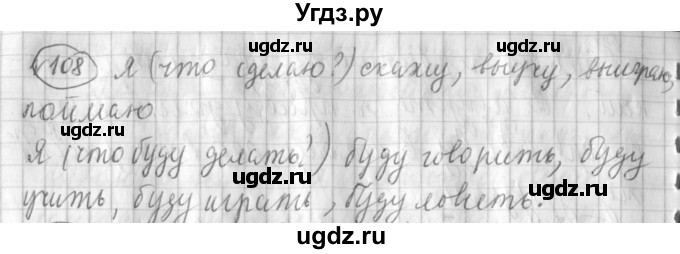 Угдз.ру
108 Я (что сделаю?) скажу, выучу, выиграю,
поймаю
Я (что буду делать?) буду говорить, буду
учить, буду играть, буду ловить.
ugdz.ru ugdz.ru ugdz.ru
ugdz.ru
ugdz.ru ugdz.ru
ugdz.ru ugdz.ru
ugdz.ru